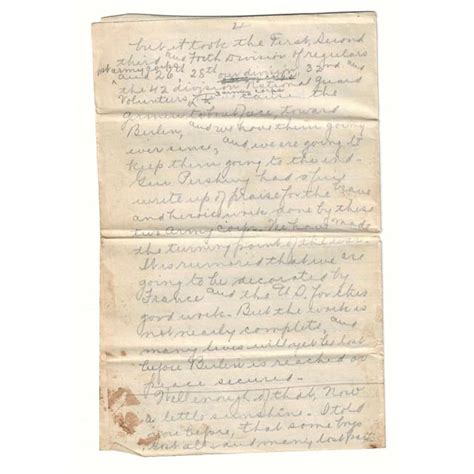 but it took the First, Second
third and Forth Division of regulars
1st army corps
and 26th 28th our division 32nd and
the 42 division National Guard
Volunteers army corps
to cause the
to move, toward
Berlin, and we have them going
ever since, and we are going to
keep them going to the end.
Gen Pershing had a
write up of praise for the brave
and heroic work done by these
two Army corps. We have made
the turning point of the war.
It is rumer'd that we are
going to be decorated by
France and the U.S. for this
good work. But the work is
not nearly complete, and
many lives will yet be lost
before Berlin is reached or
peace secured.
Well enough of that, Now
a little sunshine. I told
you before, that some boys
and many lost part